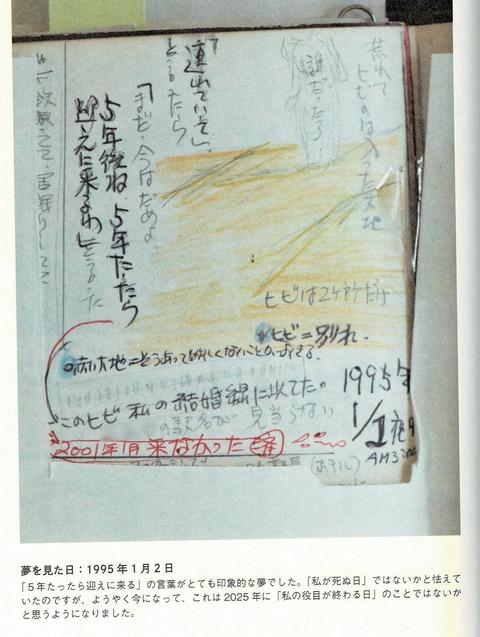 荒れて
ヒビのはいった大地
誰だったろう
「連れていって」
と言ったら
「まだ、今はだめよ、
5年後ね 5年たったら
迎えに来るわ」と言った
ヒビは2ヶ所だけ
ヒビ=別れ.
このヒビ 私の結婚線に似てた。
見当らない
1995年
1/1夜中
AM3:00
2001年1月来なかった
(ホテル)
夢を見た日：1995年1月2日
「5年たったら迎えに来る」の言葉がとても印象的な夢でした。「私が死ぬ日」ではないかと怯えて
いたのですが、ようやく今になって、これは2025年に「私の役目が終わる日」のことではないか
と思うようになりました。